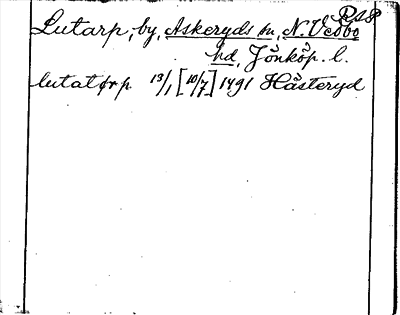 Lutarp, by, Askeryds sn, N. Vedbo
hd, Jönköp. l.
lutatorp 13/1 [10/7] 1491 Hästeryd